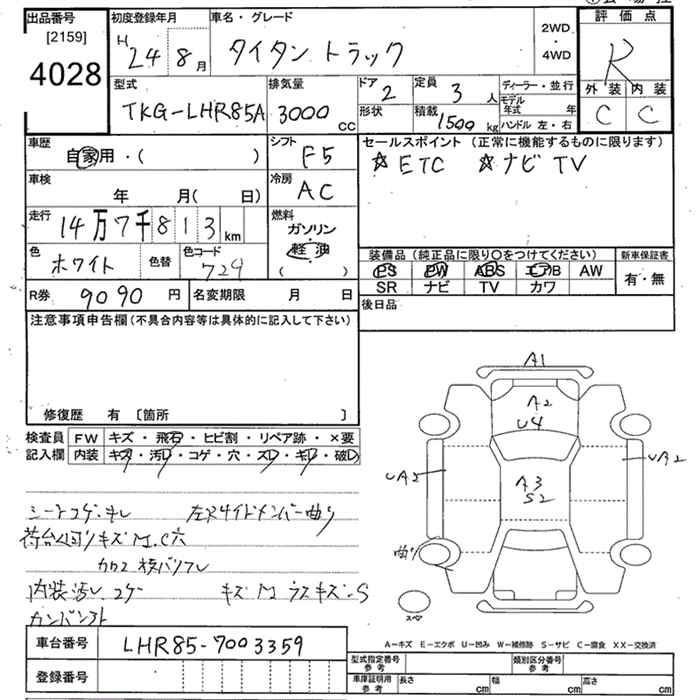 出品番号
[2159]
4028
初度登録年月
H 24 8月
車名・グレード
タイタン トラック
2WD
・
4WD
評価点
R
外装 内装
C C
型式
TKG-LHR85A
排気量
3000 cc
ドア 2
形状
定員 3 人
積載 1500 kg
ディーラー・並行
モデル年式 年
ハンドル 左・右
車歴
自家用・( )
シフト
F5
セールスポイント (正常に機能するものに限ります)
☆ETC ☆ナビTV
車検
年 月(日)
冷房
AC
走行
14万7千813km
燃料
ガソリン
・
軽油
( )
色
ホワイト
色替
色コード
724
装備品(純正品に限り○をつけてください)
PS PW ABS エアB AW
SR ナビ TV カワ
新車保証書
有・無
R券 9090 円
名変期限 月 日
後日品
注意事項申告欄(不具合内容等は具体的に記入して下さい)
修復歴 有 [箇所 ]
検査員記入欄
FW キズ・飛石・ヒビ割・リペア跡・×要
内装 キズ・汚レ・コゲ・穴・スレ・キレ・破レ
シートコゲ・キレ 左Rサイドメンバー曲り
荷台
キズM
内装汚レ コゲ キズM
A1
A2
U4
A3
S2
UA2
UA2
曲り
スペア
車台番号 LHR85-7003359
登録番号
A-キズ E-エクボ U-凹み W-補修跡 S-サビ C-腐食 XX-交換済
型式指定番号
参考
類別区分番号
参考
車庫証明用
参考
長さ cm 幅 cm 高さ cm